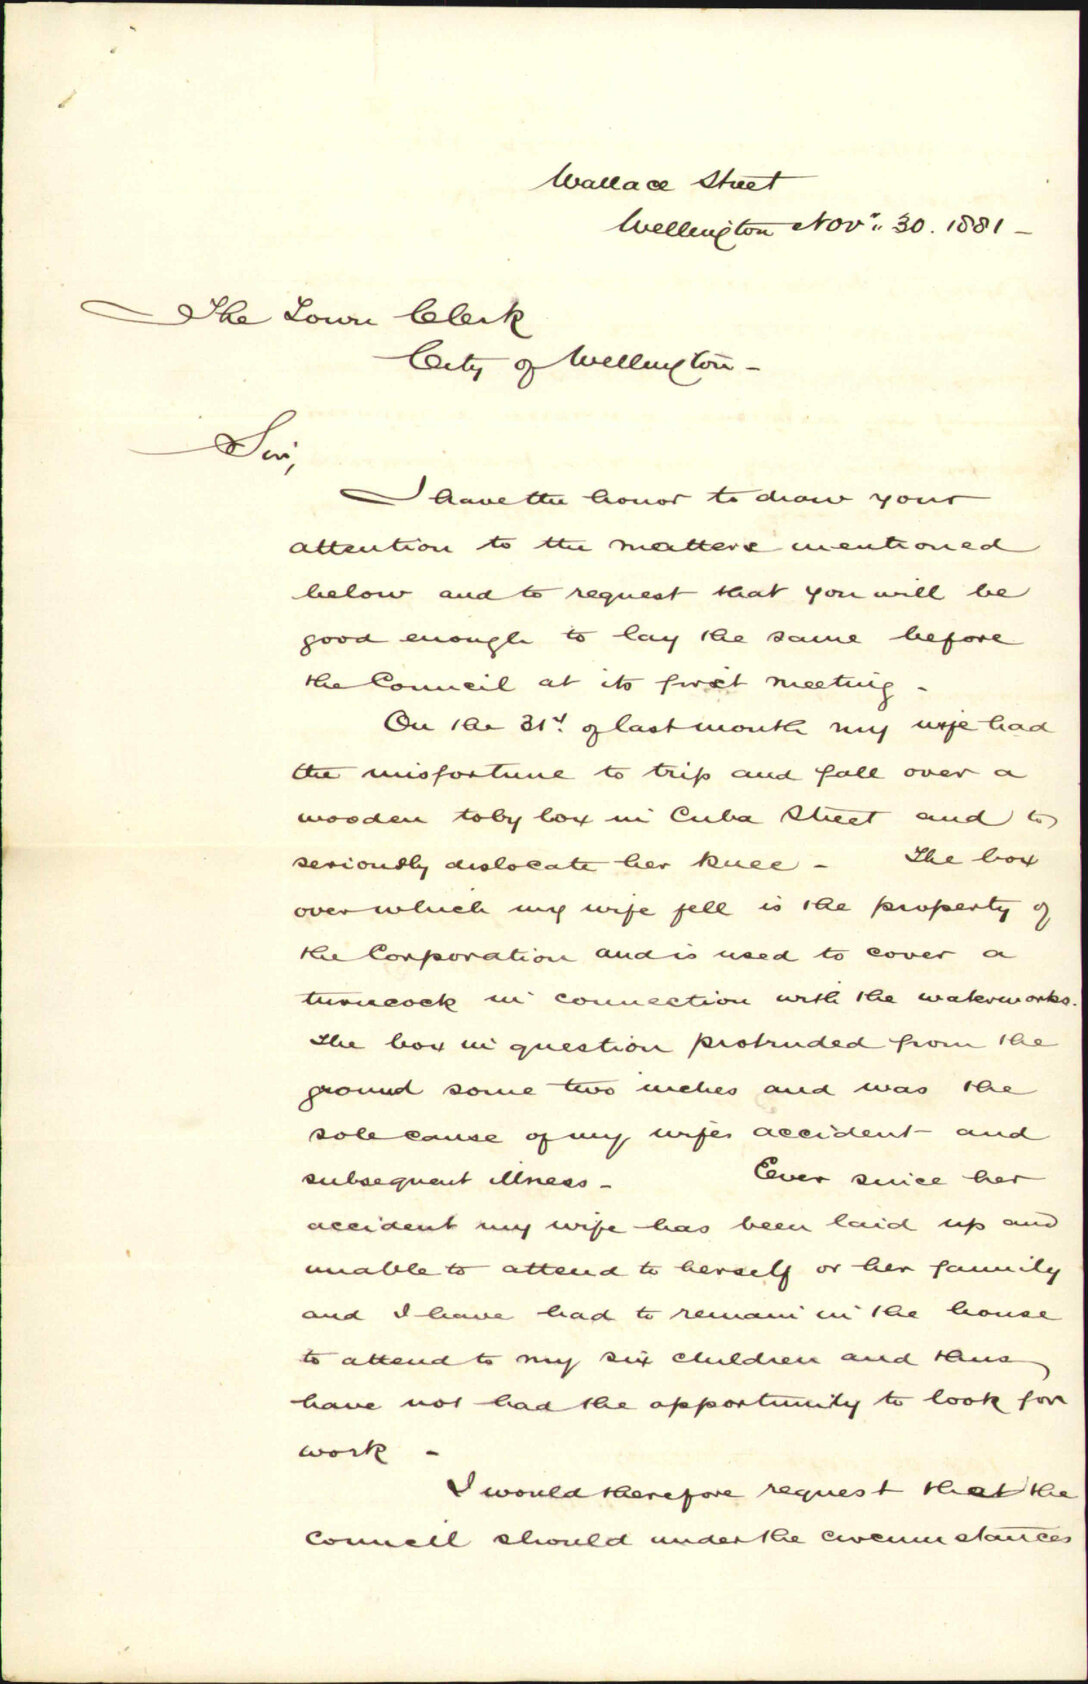 Wallace Street
Wellington Nov.. 30. 1881 -
The Town Clerk
City of Wellington -
Sir,
I have the honor to draw your
attention to the matters mentioned
below and to request that you will be
good enough to lay the same before
the Council at its first meeting -
On the 31st. of last month my wife had
the misfortune to trip and fall over a
wooden toby box in Cuba Street and to
seriously dislocate her knee - The box
over which my wife fell is the property of
the Corporation and is used to cover a
turncock in connection with the waterworks.
The box in question protruded from the
ground some two inches and was the
sole cause of my wifes accident and
subsequent illness - Ever since her
accident my wife has been laid up and
unable to attend to herself or her family
and I have had to remain in the house
to attend to my six children and thus
have not had the opportunity to look for
work -
I would therefore request that the
Council should under the circumstances